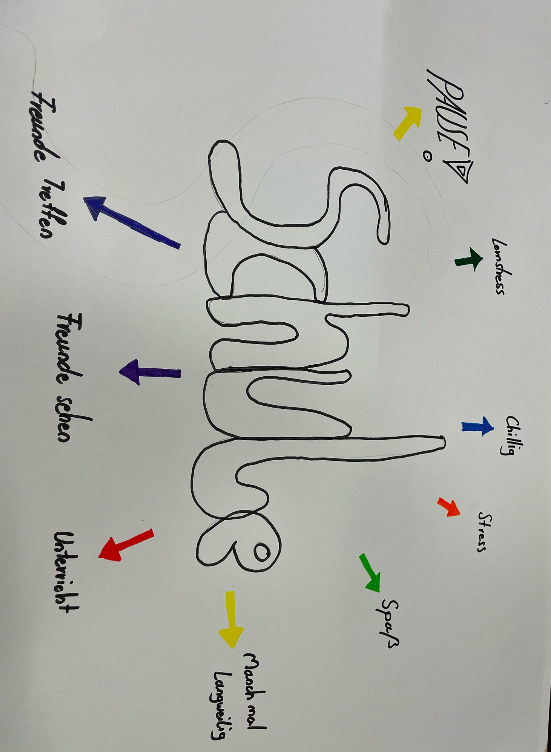 PAUSE!
Lernstress
Chillig
Stress
Spaß
Schule
Manchmal
Langweilig
Freunde Treffen
Freunde sehen
Unterricht